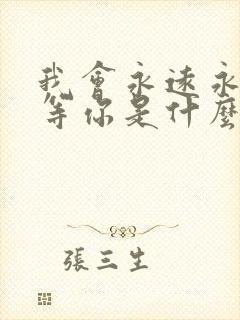 我會永遠永
等你是什麼
張三生